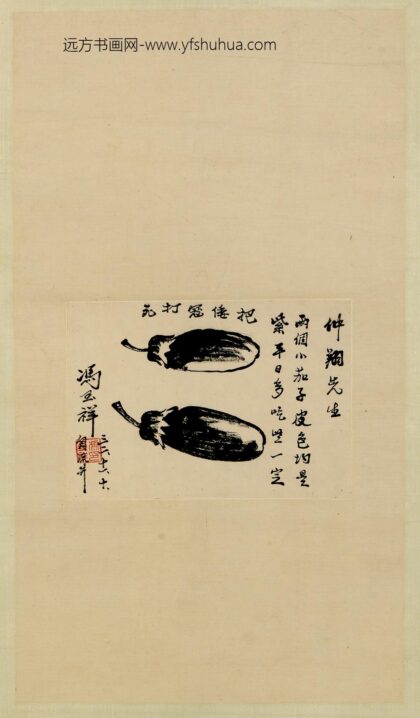 远方书画网-www.yfshuhua.com
仲翔先生
两個小茄子皮色均是
紫平日多吃些一定
把倭寇打死
馮玉祥
自流井